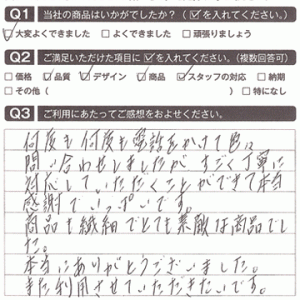 Q1 当社の商品はいかがでしたか？（☑を入れてください。）
☑大変よくできました □よくできました □頑張りましょう
Q2 ご満足いただけた項目に☑を入れてください。（複数回答可）
□価格 ☑品質 ☑デザイン ☑商品 ☑スタッフの対応 □納期
□その他（ ） □特になし
Q3 ご利用にあたってご感想をおよせください。
何度も何度も電話をかけて
問い合わせしましたが すごく丁寧に
対応していただくことができて本当
感謝でいっぱいです。
商品も繊細でとても素敵な商品でし
た。
本当にありがとうございました。
また利用させていただきたいです。